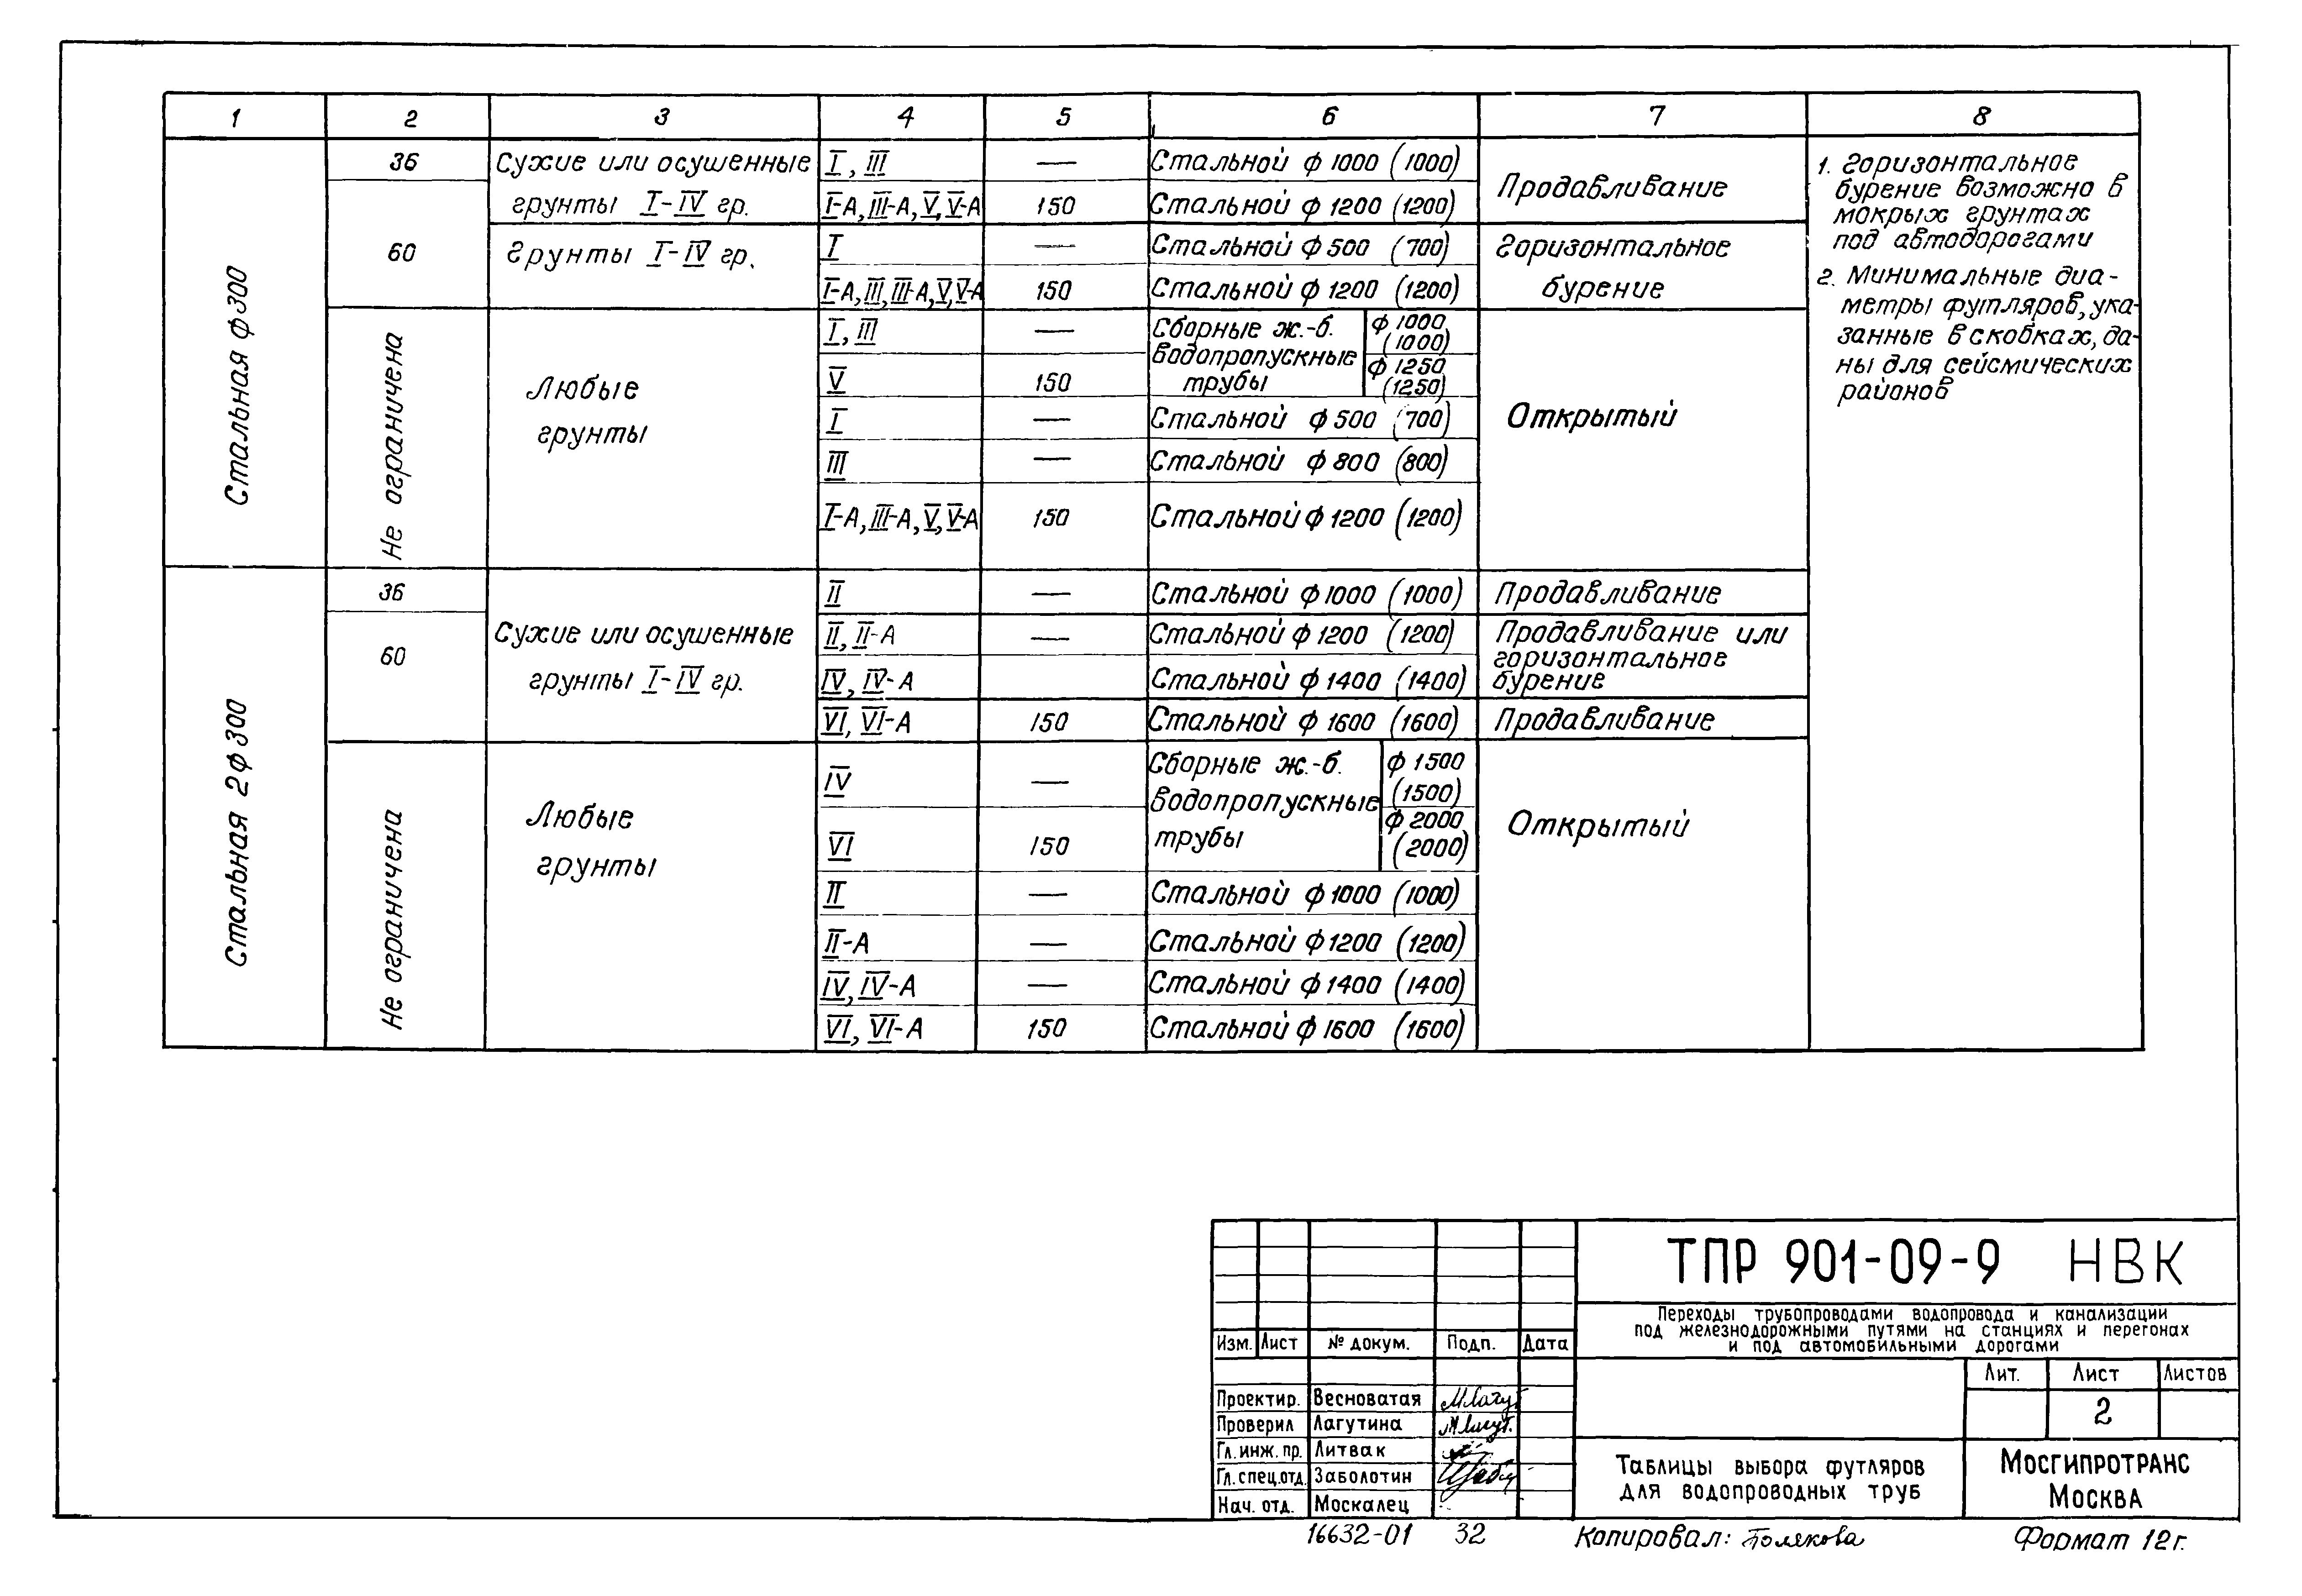 1 2 3 4 5 6 7 8
Стальная ф300
36
60
Не ограничена
Сухие или осушенные
грунты I-IV гр.
Грунты I-IV гр.
Любые
грунты
I, III — Стальной ф 1000 (1000)
I-А, III-А, V, V-А 150 Стальной ф 1200 (1200)
Продавливание
I — Стальной ф 500 (700)
I-А, III, III-А, V, V-А 150 Стальной ф 1200 (1200)
Горизонтальное
бурение
I, III —
V 150
Сборные ж.-б.
водопропускные
трубы
ф 1000
(1000)
ф 1250
(1250)
I — Стальной ф 500 (700)
III — Стальной ф 800 (800)
I-А, III-А, V, V-А 150 Стальной ф 1200 (1200)
Открытый
1. Горизонтальное
бурение возможно в
мокрых грунтах
под автодорогами
2. Минимальные диа-
метры футляров, ука-
занные в скобках, да-
ны для сейсмических
районов
Стальная 2ф300
36
60
Не ограничена
Сухие или осушенные
грунты I-IV гр.
Любые
грунты
II — Стальной ф 1000 (1000) Продавливание
II, II-А — Стальной ф 1200 (1200)
IV, IV-А Стальной ф 1400 (1400)
Продавливание или
горизонтальное
бурение
VI, VI-А 150 Стальной ф 1600 (1600) Продавливание
IV —
VI 150
Сборные ж.-б.
водопропускные
трубы
ф 1500
(1500)
ф 2000
(2000)
II — Стальной ф 1000 (1000)
II-А — Стальной ф 1200 (1200)
IV, IV-А — Стальной ф 1400 (1400)
VI, VI-А 150 Стальной ф 1600 (1600)
Открытый
ТПР 901-09-9 НВК
Переходы трубопроводами водопровода и канализации
под железнодорожными путями на станциях и перегонах
и под автомобильными дорогами
Изм. Лист № докум. Подп. Дата
Лит. Лист Листов
2
Проектир. Весноватая
Проверил Лагутина
Гл. инж. пр. Литвак
Гл. спец. отд. Заболотин
Нач. отд. Москалец
Таблицы выбора футляров
для водопроводных труб
Мосгипротранс
Москва
16632-01 32 Копировал: Полякова Формат 12г.